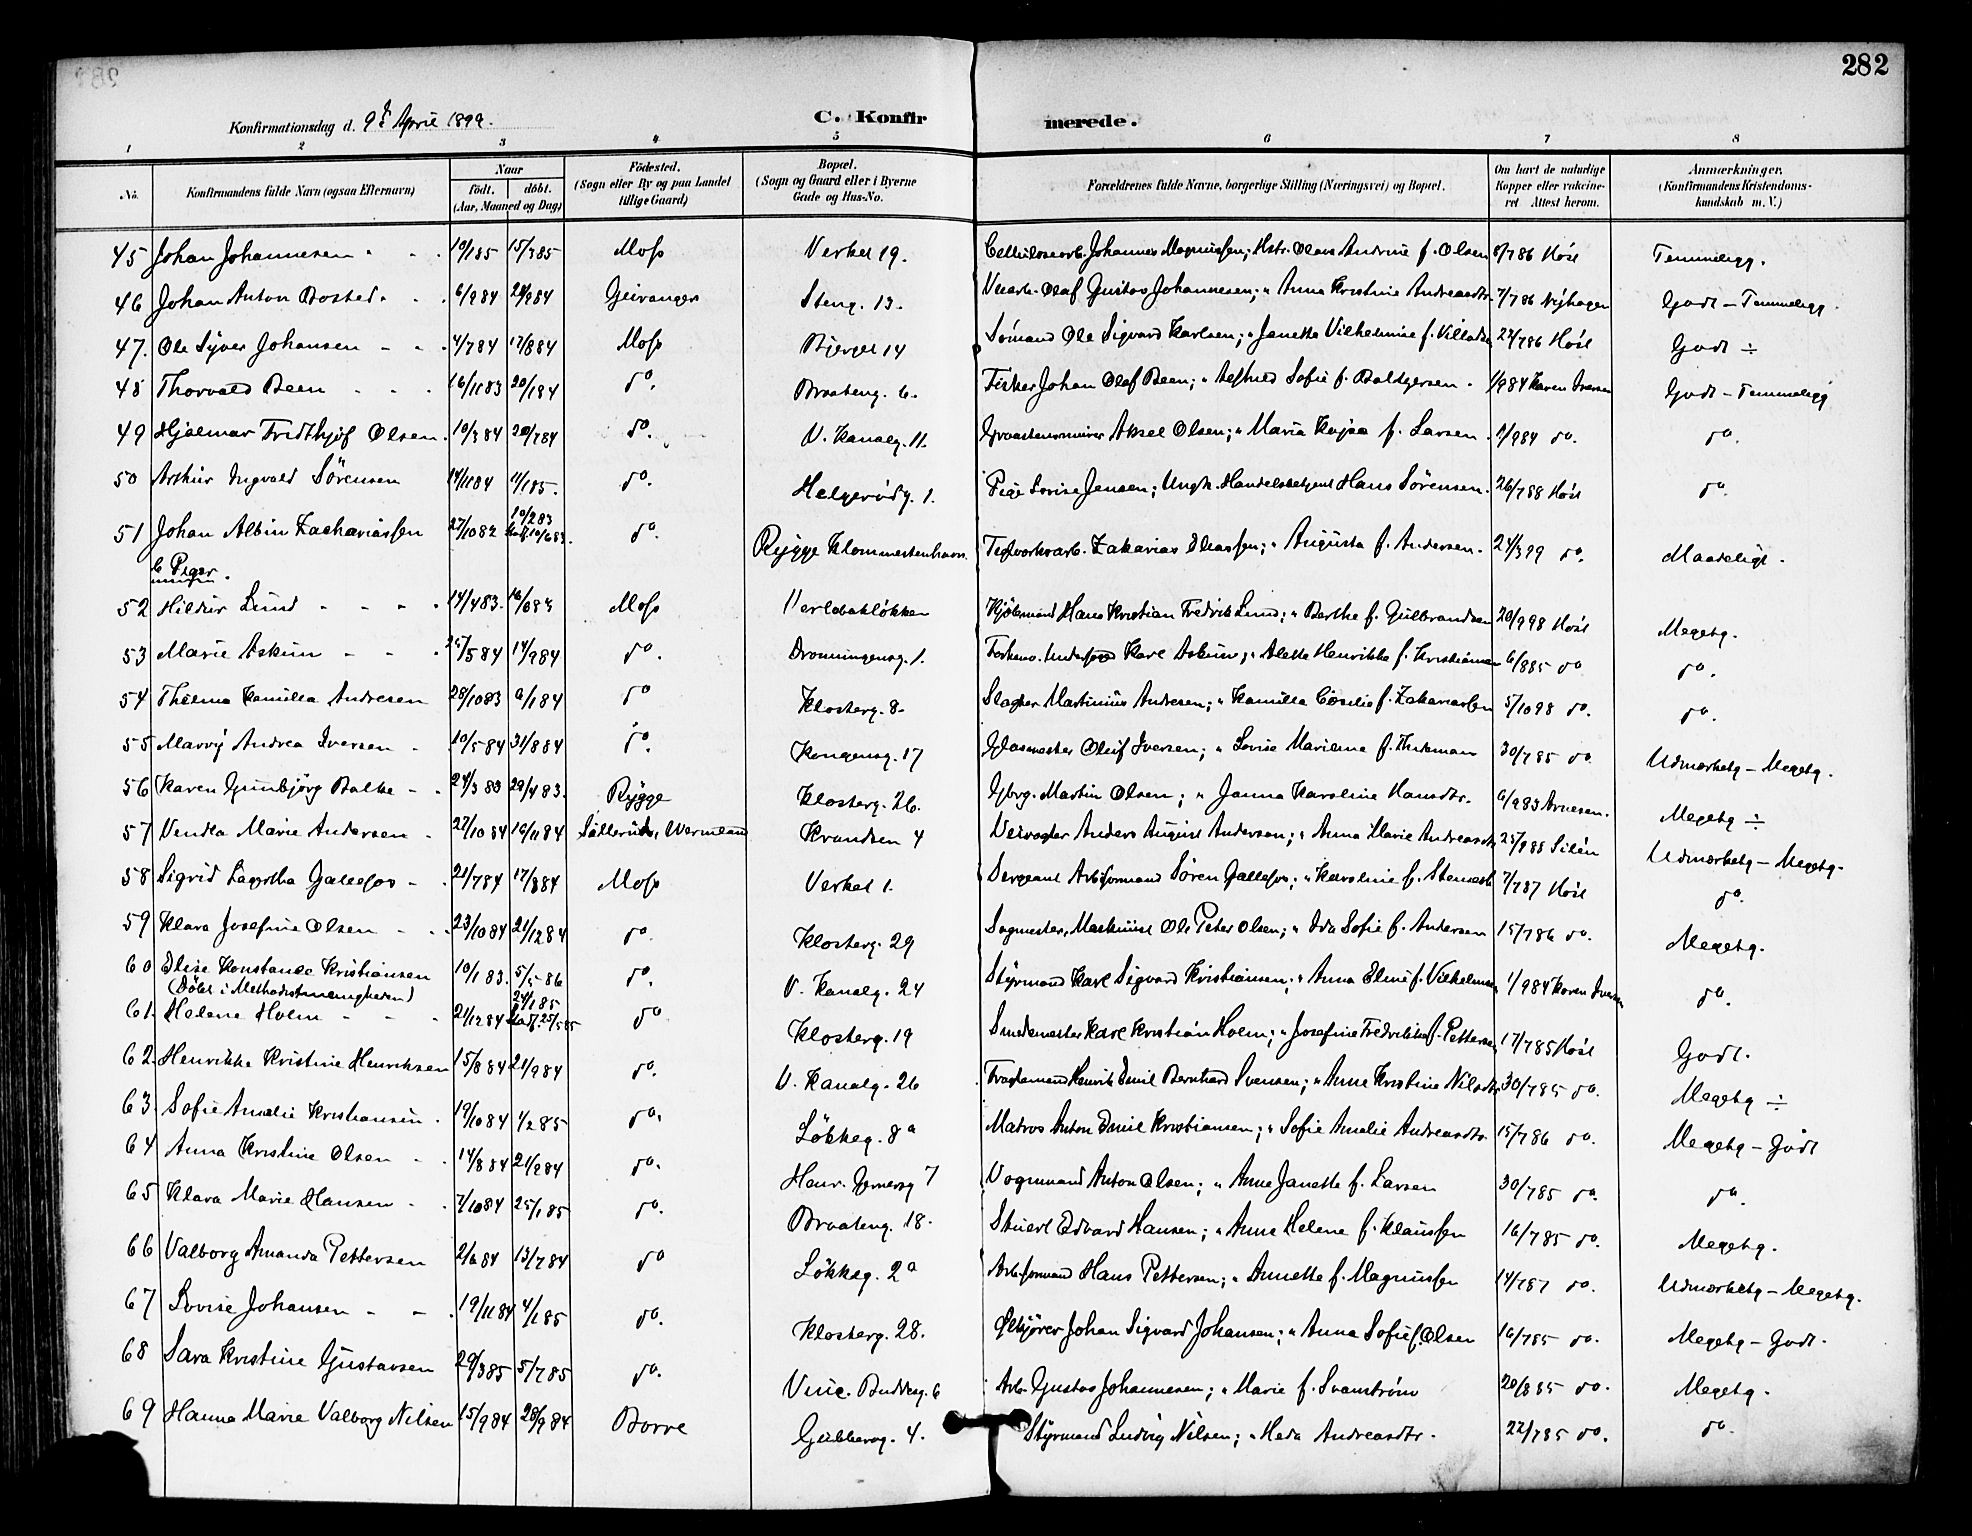 282
Konfirmationsdag d. 9de April 1899.
C. Konfirmerede.
1 2 3 4 5 6 7 8
No. Konfirmandens fulde Navn (ogsaa Efternavn) Naar födt. döbt. (Aar, Maaned og Dag) Födested. (Sogn eller By og paa Landet tillige Gaard) Bopæl. (Sogn og Gaard eller i Byerne Gade og Hus-No. Forældrenes fulde Navne, borgerlige Stilling (Næringsvei) og Bopæl. Om havt de naturlige Kopper eller vaccineret. Attest herom. Anmærkninger. (Konfirmandens Kristendomskundskab m. V.)
45 Johan Johannesen 10/1 85 15/3 85 Moss Verket 19. Cellulosearb. Johannes Magnussen; Hstr. Olava Andrine f. Olsen 8/7 86 Høst Temmeligg.
46 Johan Anton Bosted 6/9 84 28/9 84 Geiranger Steng. 13. Olaf Gustav Johannesen; " Anna Kristine Andreasdtr. 7/7 86 Nyhagen Godt – Temmeligg.
47. Ole Syver Johansen 4/7 84 17/8 84 Moss Bjerget 14 Sömand Ole Sigvard Karlsen; " Janette Vilhelmine f. 22/7 86 Høst Godt ÷
48 Thorvald Been 16/11 83 20/1 84 do. Braateng. 6. Fisker Johan Olaf Been; " Sofie f. Boldgersen. 1/9 84 Karen Iversen Godt – Temmeligg
49 Hjalmar Fridthjof Olsen. 10/3 84 20/7 84 do. V. Kanalg. 11. Aksel Olsen; " Maria Kajsa f. Larsen. 1/9 84 do. do.
50 Arthur Ingvald Sörensen 14/11 84 11/1 85. do. Helgerödg. 1. Pige Lovise Jensen; Ungk. Handelsbetjent Hans Sörensen. 26/7 88 Høst do.
51 Johan Albin Zachariassen 27/10 82 10/2 83 Stadf. 10/6 83. do. Rygge Klommestenhavn. Teglverksarb. Zakarias Eliassen; " Augusta f. Andersen. 24/3 99 do. Maadeligt.
b Piger.
52 Hildur Lund 14/4 83. 16/6 83 Moss Verlebakløkken Kjöbmand Hans Kristian Fredrik Lund; " Berthe f. Gulbrandsen 20/9 98 Høst Megetg.
53 Marie Askim 25/5 84 14/9 84 do. Dronningensg. 1. Karl Askim; " Alette Henrikke f. Kristiansen 6/8 85 do do.
54 Thelma Kamilla Andresen 28/10 83 6/1 84 do Klosterg. 8. Slagter Martinius Andresen; " Kamilla Cæcilie f. Zakariassen 5/10 98 do. do.
55 Marvy Andrea Iversen 10/5 84 31/8 84 do. Kongensg. 17 Glasmester Oluf Iversen; " Lovise Mariane f. 30/7 85 do. Udmærketg – Megetg.
56 Karen Gunbjörg Balke 24/3 83 29/4 83. Rygge Klosterg. 26. Gbrg. Martin Olsen; " Janna Karoline Hansdtr. 6/9 83 Arnesen. Megetg ÷
57 Vendla Marie Andersen 27/10 84 16/11 84 Wermland Kransen 4 Anders August Andersen; " Anna Marie Andreasdtr 25/9 85 Silén Udmærketg – Megetg.
58 Sigrid Lagertha Gallefos 21/7 84 17/8 84 Moss Verket 1. Sergeant Arbsformand Sören Gallefos; " Karoline f. 7/7 87 Høst do.
59 Klara Josefine Olsen 23/10 84 21/12 84 do. Klosterg. 29 Sagmester, Maskinist Ole Peter Olsen; " Ida Sofie f. Andersen 15/7 86 do. Megetg.
60 Elise Konstance Kristiansen 10/1 83. 5/5 86 do. V. Kanalg. 24 Styrmand Karl Sigvard Kristiansen; " Anna Eline f. Vilhelmsen 1/9 84 Karen Iversen do.
(Döbt i Methodistmenigheden)
61. Helene Holm 21/12 84 24/1 85 Stadf. 25/5 85 do Klosterg. 19 Smedemester Karl Kristian Holm; " Josefine Fredrikke f. Pettersen 17/7 85 Høst Godt.
62 Henrikke Kristine Henriksen 15/8 84 21/9 84 do. V. Kanalg. 26 Henrik Emil Bernhard Svensen; " Anne Kristine Nilsdtr 30/7 85 do. Megetg ÷
63. Sofie Amalie Kristiansen. 19/10 84 1/2 85 do. Lökkeg. 8a Matros Anton Emil Kristiansen; " Sofie Amalie Andreasdtr. 15/7 86 do. Megetg – Godt
64 Anna Kristine Olsen 14/8 84 21/9 84 do. Henr. Gernersg 7 Vognmand Anton Olsen; " Anne Janette f. Larsen 30/7 85 do. do.
65 Klara Marie Hansen 7/10 84 25/1 85 do. Braateng. 18. Stuert Edvard Hansen; " Anne Helene f. Klaussen 16/7 85 do. Megetg.
66 Valborg Amanda Pettersen 2/6 84 13/7 84 do Lökkeg. 2a Arbsformand Hans Pettersen; " Annette f. Magnussen 14/7 87 do. Udmærketg – Megetg.
67 Lovise Johansen 19/11 84 4/1 85 do. Klosterg. 28. Johan Sigvard Johansen; " Anna Sofie f. Olsen 16/7 85 do. Megetg – Godt.
68 Sara Kristine Gustavsen 29/3 85 5/7 85 do. Vinc. Buddesg. 6 Arb. Gustav Johannesen; " Marie f. Svanström 20/8 85 do. Megetg.
69 Hanna Marie Valborg Nilsen 15/9 84 28/9 84 Borre Gubberog. 4. Styrmand Ludvig Nilsen; " Heda Andreasdtr. 22/7 85 do. do.